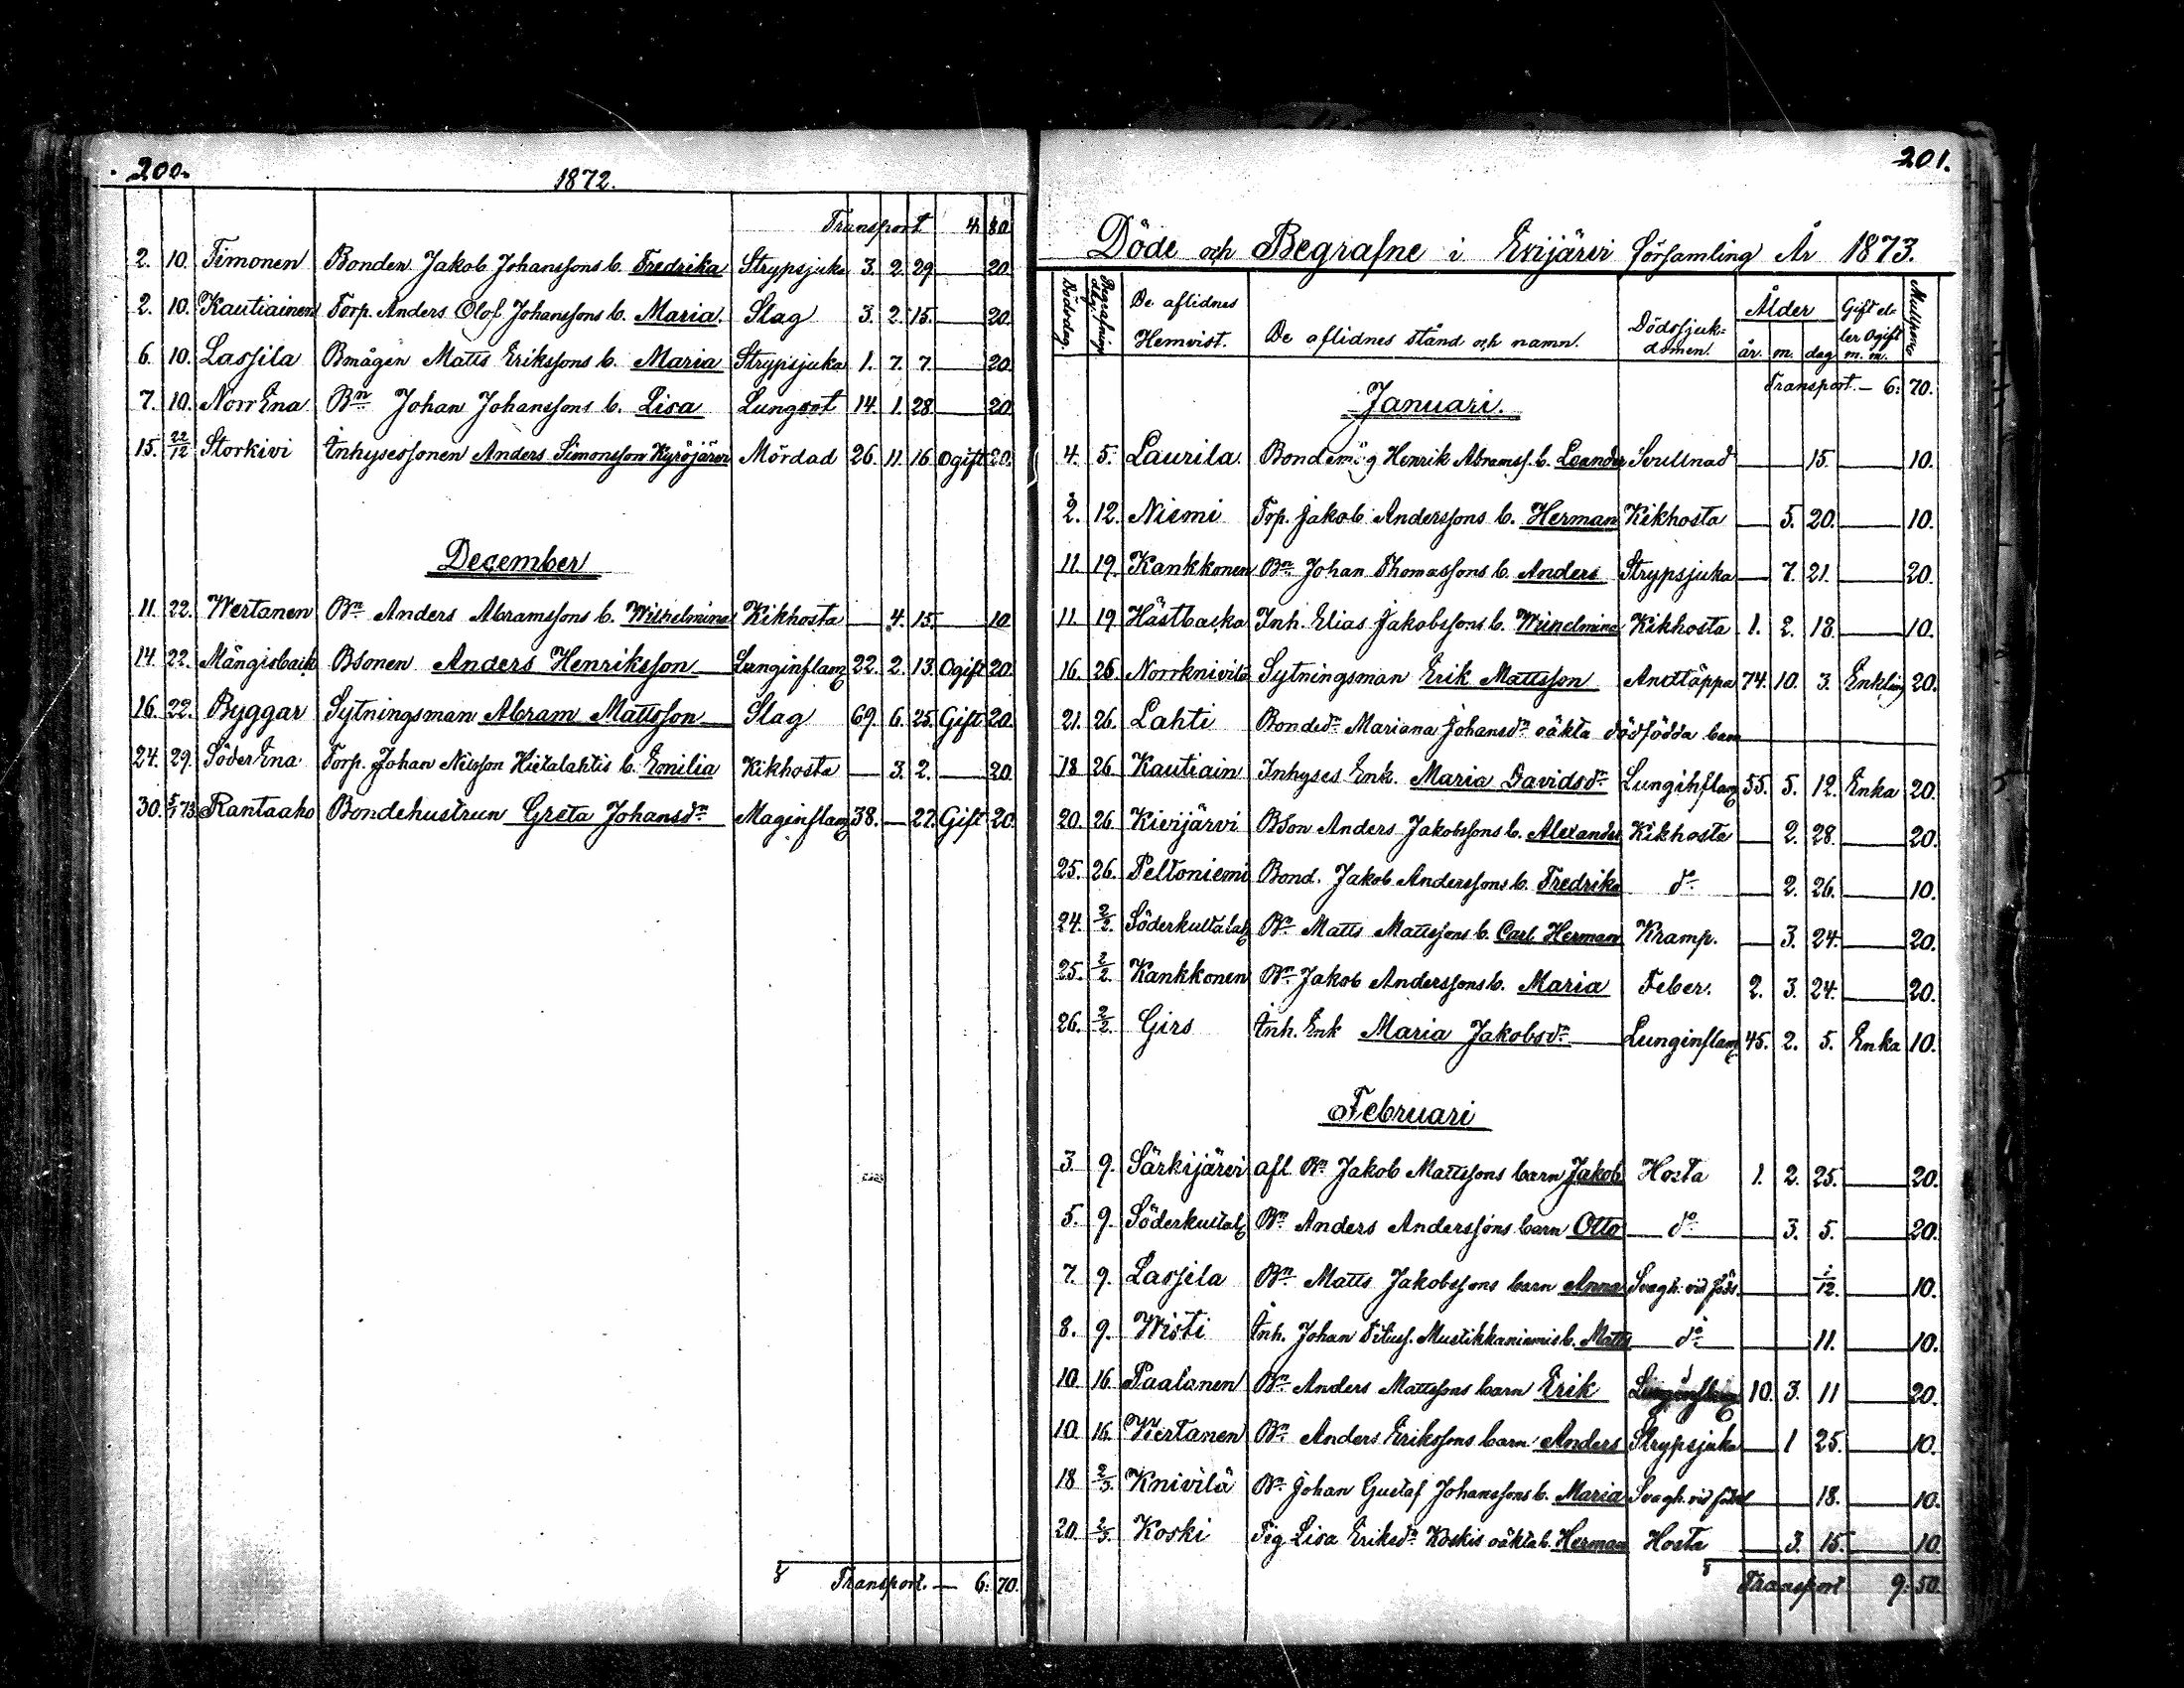 200.
1872.
Transport 4 80
2. 10. Timonen Bonden Jakob Johanssons b. Fredrika Strypsjuka 3. 2. 29 — 20
2. 10. Kautiainen Torp. Anders Olof Johanssons b. Maria. Slag 3. 2. 15. — 20.
6. 10. Lassila Bmågen Matts Erikssons b. Maria Strypsjuka 1. 7. 7. — 20.
7. 10. Norr Ena Bn Johan Johanssons b. Lisa Lungsot 14. 1. 28 — 20
15. 22/12 Storkivi Inhysessonen Anders Simonsson Kyröjärvi Mördad 26. 11. 16 Ogift 20.
December
11. 22. Wertanen Bn Anders Abramssons b. Wilhelmina Kikhosta — 4. 15. — 10
14. 22. Mångsback Bsonen Anders Henriksson Lunginflam 22. 2. 13. Ogift 20.
16. 22. Byggar Sytningsman Abram Mattsson Slag 69. 6. 25. Gift 20.
24. 29. Söder Ena Torp. Johan Nilsson Hietalahtis b. Emilia Kikhosta — 3. 2. — 20
30. 5/1 73 Rantaaho Bondehustrun Greta Johansdr Maginflam 38. — 27. Gift 20.
Transport. — 6: 70.
201.
Döde och Begrafne i Evijärvi församling År 1873.
Dödsdag. Begrafnings dag. De aflidnes Hemvist. De aflidnes stånd och namn. Dödssjukdomen. Ålder år. m. dag Gift eller Ogift m. m. Mullpeng
Transport. — 6: 70.
Januari.
4. 5. Laurila. Bondemåg Henrik Abramss. b. Leander Svullnad — 15. — 10.
2. 12. Niemi Torp. Jakob Anderssons b. Herman Kikhosta — 5. 20. — 10.
11. 19. Kankkonen Bn Johan Thomassons b. Anders Strypsjuka — 7. 21. — 20.
11. 19 Hästbacka Inh. Elias Jakobssons b. Wilhelmina Kikhosta 1. 2. 18. — 10.
16. 26. Norrknivilä Sytningsman Erik Mattsson Andtäppa 74. 10. 3. Enkling 20.
21. 26. Lahti Bonded. Mariana Johansdr oäkta dödfödda barn
18 26 Kautiain Inhyses Enk. Maria Davidsdr Lunginflam 55. 5. 12. Enka 20.
20. 26 Kivijärvi BSon Anders Jakobssons b. Alexander Kikhosta — 2. 28. — 20.
25. 26. Peltoniemi Bond. Jakob Anderssons b. Fredrika do — 2. 26. — 10.
24. 2/2. Söderkultalah Bn Matts Mattssons b. Carl Herman Kramp. — 3. 24. — 20.
25. 2/2 Kankkonen Bn Jakob Anderssons b. Maria Feber. 2. 3. 24. — 20.
26. 2/2. Girs Inh. Enk Maria Jakobsdr Lunginflam 45. 2. 5. Enka 10.
Februari
3 9. Särkijärvi afl. Bn Jakob Mattssons barn Jakob Hosta 1. 2. 25. — 20.
5. 9. Söderkultal Bn Anders Anderssons barn Otto do 3. 5. — 20.
7. 9. Lassila Bn Matts Jakobssons barn Anna Svagh. vid föds. 1/12. — 10.
8. 9. Wisti Inh. Johan Mustikkaniemis b. Matts do 11. — 10.
10 16 Paalanen Bn Anders Mattssons barn Erik 10. 3. 11 — 20.
10 16. Wertanen Bn Anders Erikssons barn Anders Strypsjuka — 1 25. — 10.
18 2/3. Knivilä Bn Johan Gustaf Johanssons b. Maria Svagh. vid föds 18. — 10.
20. 2/3. Koski Pig. Lisa Eriksdr Koskis oäkta b. Herman Hosta — 3. 15. — 10.
Transport 9: 50.